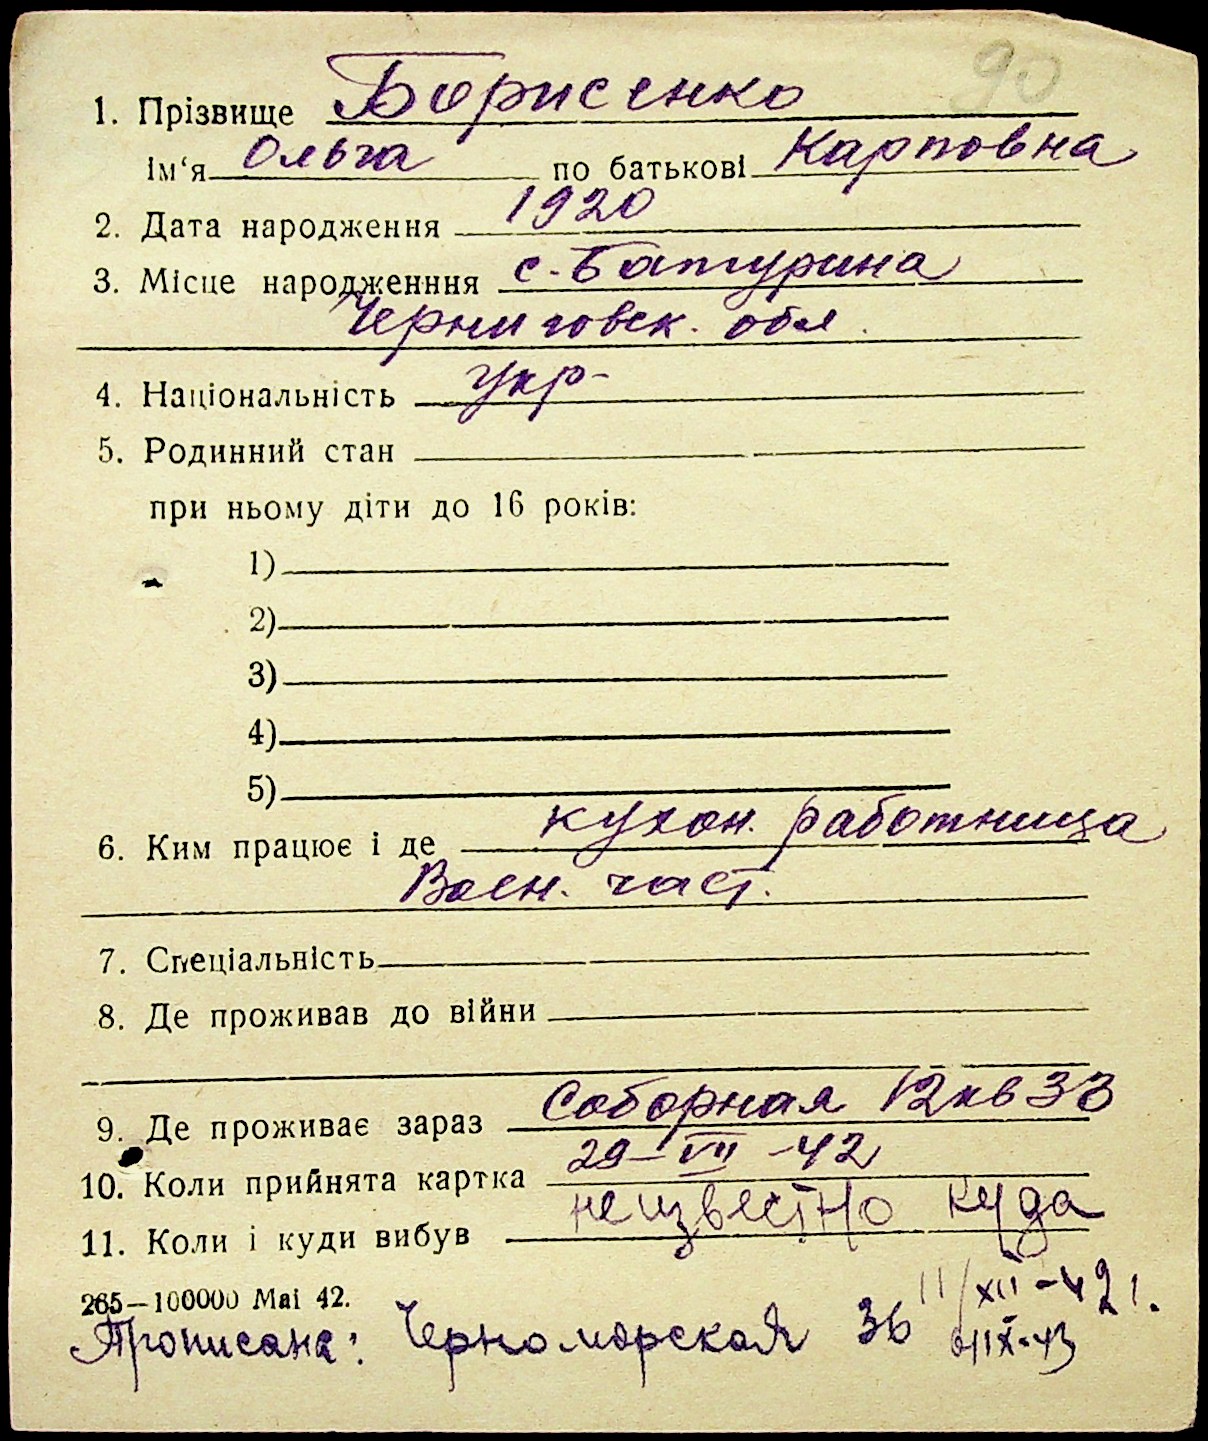 90
1. Прізвище Борисенко
ім'я Ольга по батькові Карповна
2. Дата народження 1920
3. Місце народженння с. Батурина
Черниговск. обл.
4. Національність укр-
5. Родинний стан
при ньому діти до 16 років:
1)
2)
3)
4)
5)
6. Ким працює і де кухон. работница
Воен. част.
7. Спеціальність
8. Де проживав до війни
9. Де проживає зараз Соборная 12 кв 33
10. Коли прийнята картка 29-VII-42
11. Коли і куди вибув неизвестно куда
265—100000 Mai 42. 11/XII-42 г.
Прописана: Черноморская 36